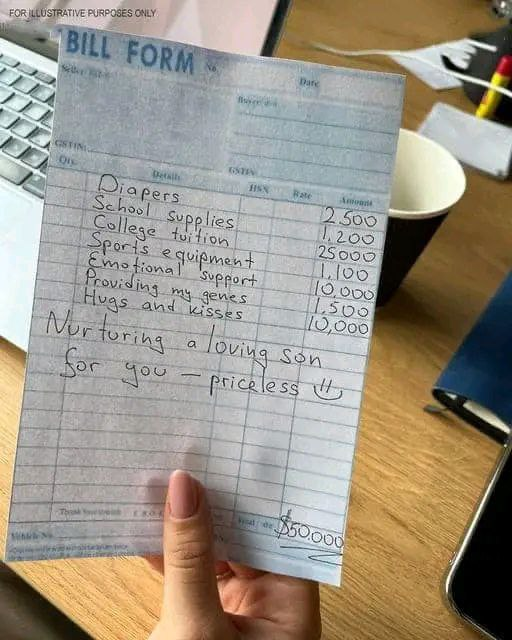 FOR ILLUSTRATIVE PURPOSES ONLY
BILL FORM No.
Date
GSTIN:
GSTIN:
Qty. Details HSN Rate Amount
Diapers 2,500
School supplies 1,200
College tuition 25000
Sports equipment 1,100
Emotional support 10,000
Providing my genes 1,500
Hugs and kisses 10,000
Nurturing a loving son
for you – priceless
$50.000
Vehicle No.